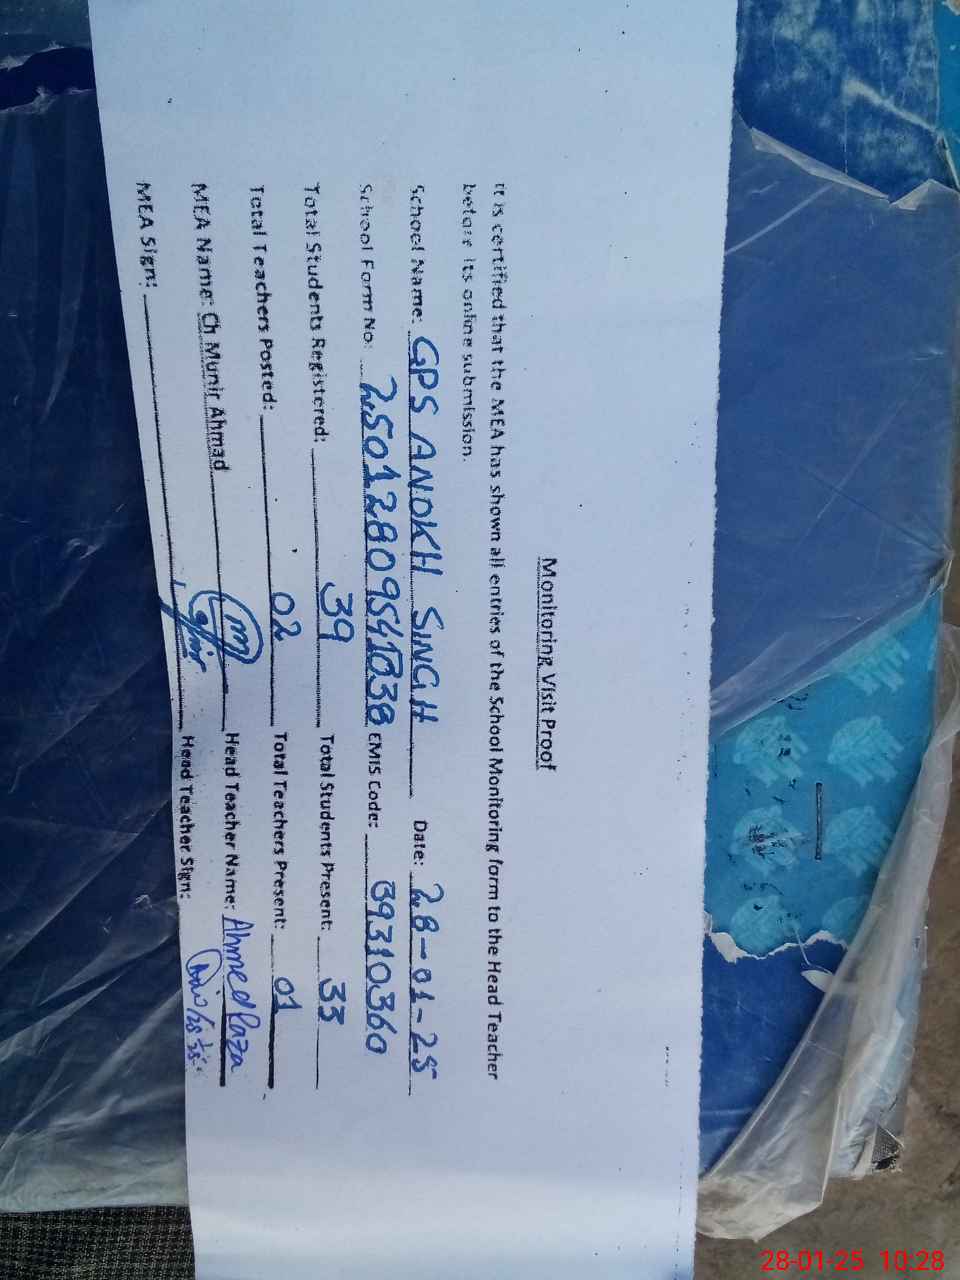 Monitoring Visit Proof
It is certified that the MEA has shown all entries of the School Monitoring form to the Head Teacher
before its online submission.
School Name: GPS ANOKH SINGH Date: 28-01-25
School Form No: 25012809541038 EMIS Code: 39310360
Total Students Registered: 39 Total Students Present: 33
Total Teachers Posted: 02 Total Teachers Present: 01
MEA Name: Ch Munir Ahmad Head Teacher Name: Ahmed Raza
MEA Sign: Head Teacher Sign:
28-01-25 10:28